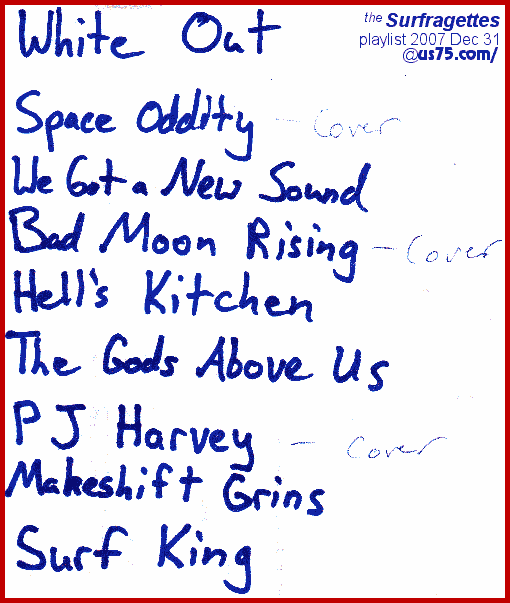 White Out
the Surfragettes
playlist 2007 Dec 31
@us75.com/
Space Oddity - Cover
We Got a New Sound
Bad Moon Rising - Cover
Hell's Kitchen
The Gods Above Us
PJ Harvey - Cover
Makeshift Grins
Surf King